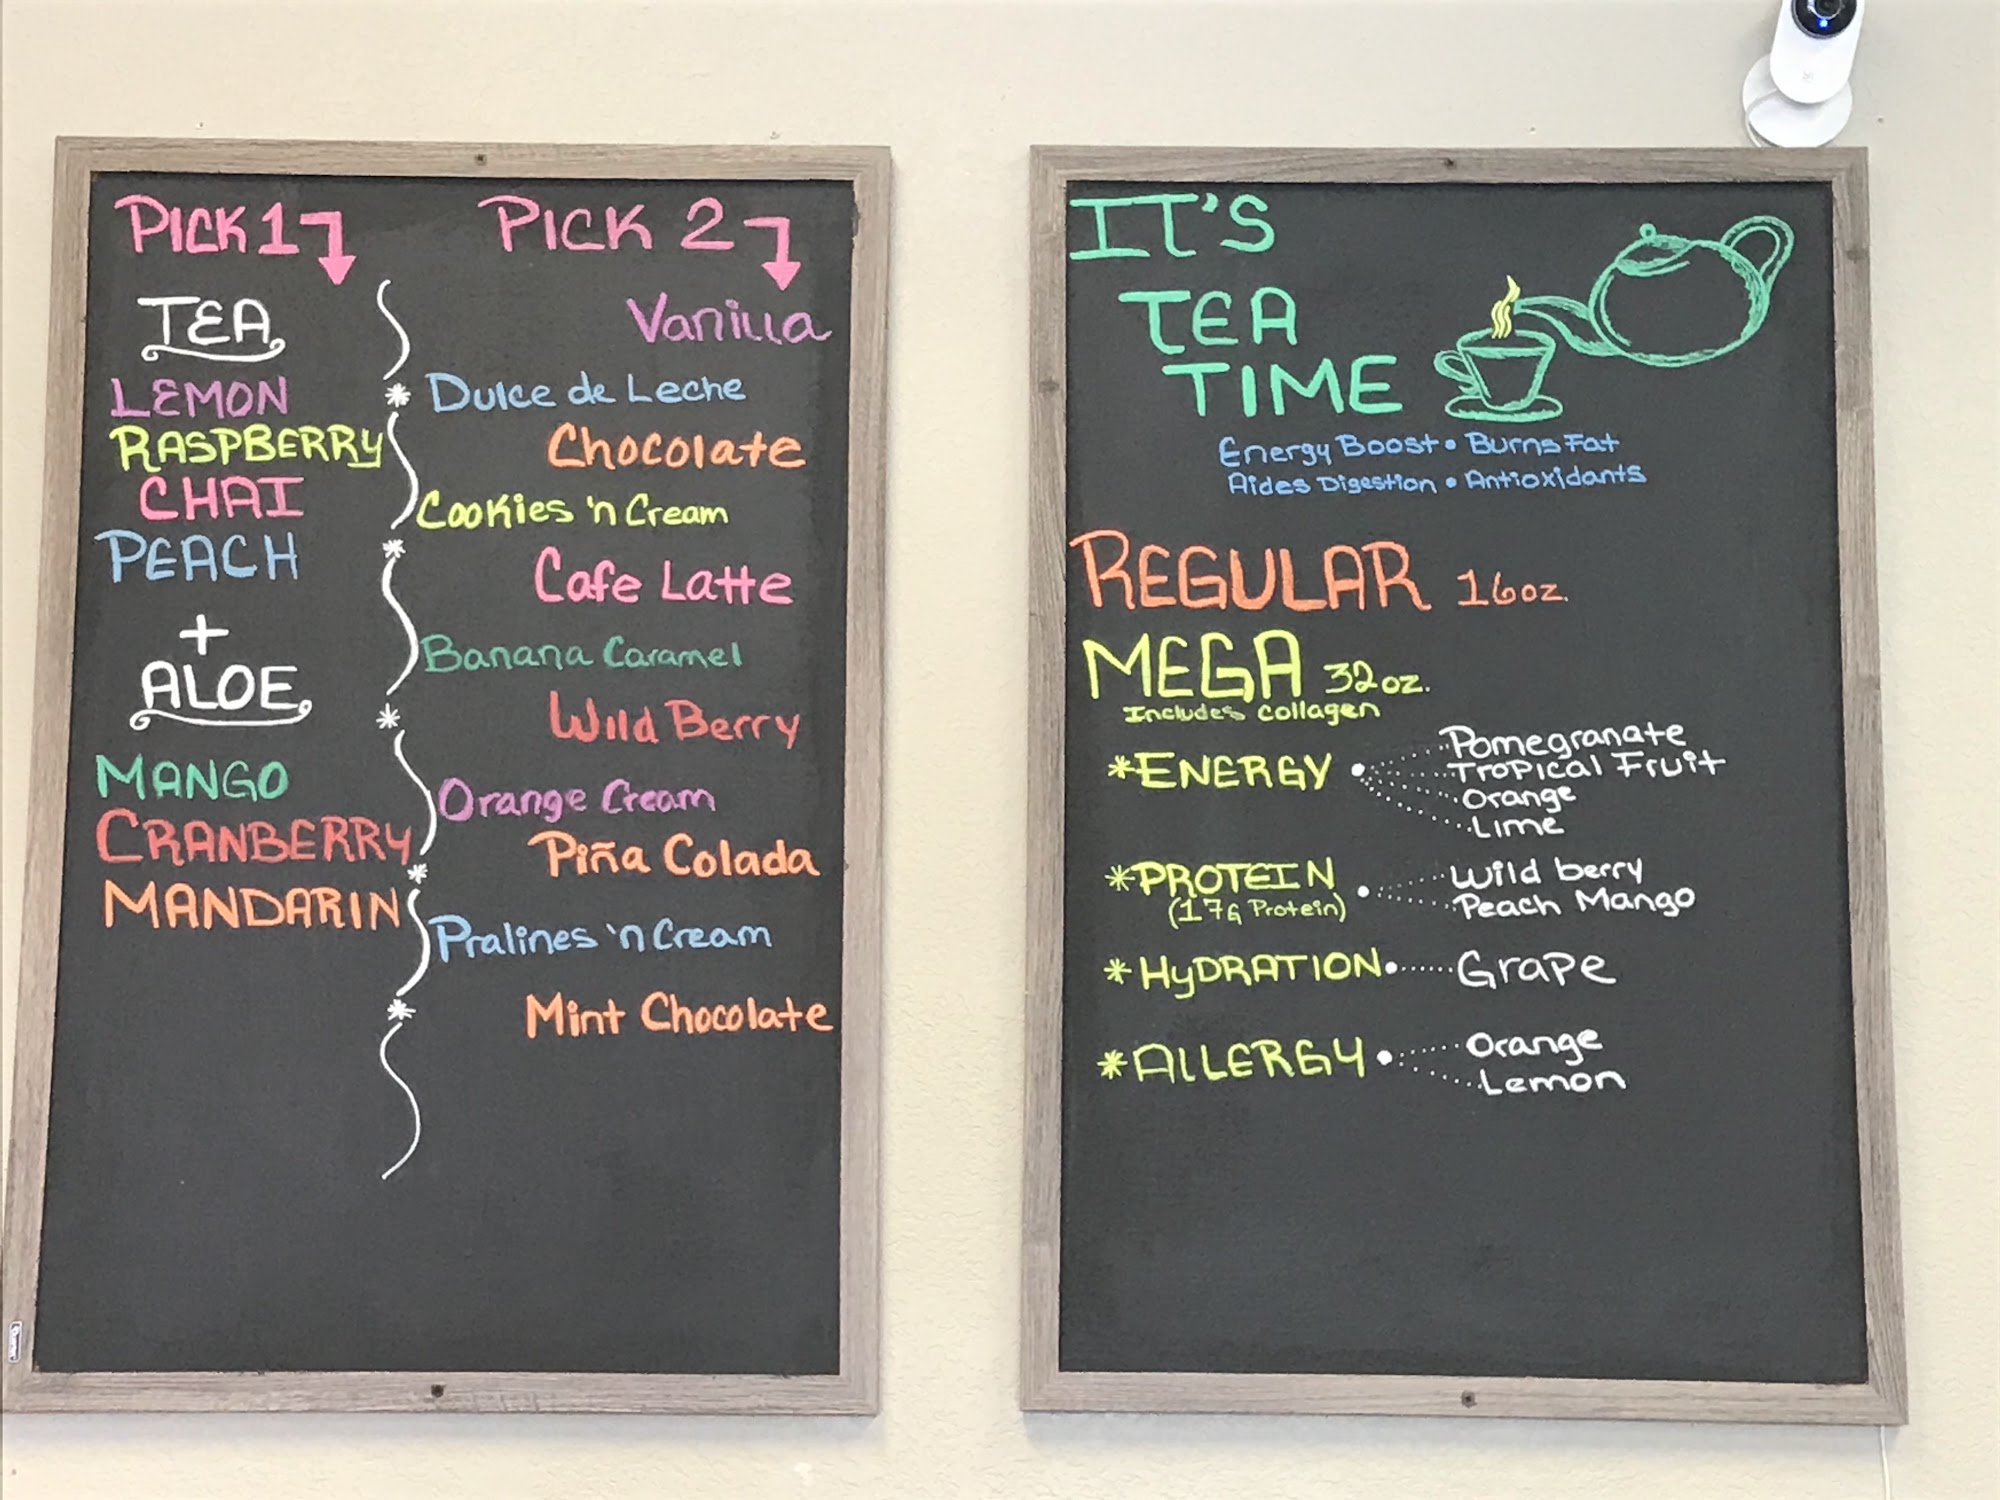 PICK 1
TEA
LEMON
RASPBERRY
CHAI
PEACH
+
ALOE
MANGO
CRANBERRY
MANDARIN
PICK 2
Vanilla
Dulce de Leche
Chocolate
Cookies 'n Cream
Cafe Latte
Banana Caramel
Wild Berry
Orange Cream
Piña Colada
Pralines 'n Cream
Mint Chocolate
IT'S
TEA
TIME
Energy Boost • Burns Fat
Aides Digestion • Antioxidants
REGULAR 16oz.
MEGA 32oz.
Includes collagen
*ENERGY
Pomegranate
Tropical Fruit
Orange
Lime
*PROTEIN
(17G Protein)
Wild berry
Peach Mango
*HyDRATION Grape
*ALLERGY
Orange
Lemon